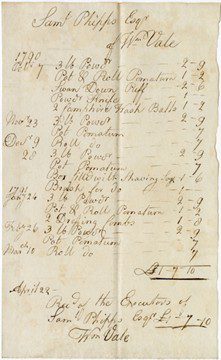 Saml. Phipps Esqr.
of Wm. Vale
1790
7 3 lb Powr. 2-9
Pot & Roll Pomatum 1-2
Swan Down Puff 2-6
Powr. Knife
2 Camphire Wash Balls 1-2
Novr. 23 3 lb Powr. 2-9
Pot Pomatum 7
Decr. 9 Roll Do 7
20 3 lb Powr. 2-9
Pot Pomatum 7
Box fill'd with Shaving 1-6
1791 Brush for Do
Jany. 24 3 lb Powr. 2-9
Pot & Roll Pomatum 1-2
2 Combs 1-8
26 3 lb Powdr. 2-9
Pot Pomatum 7
March 10 Roll Do 7
£1-7-10
April 22
Recd. of the Executors of
Saml. Phipps Esqr. £1-7-10
Wm Vale